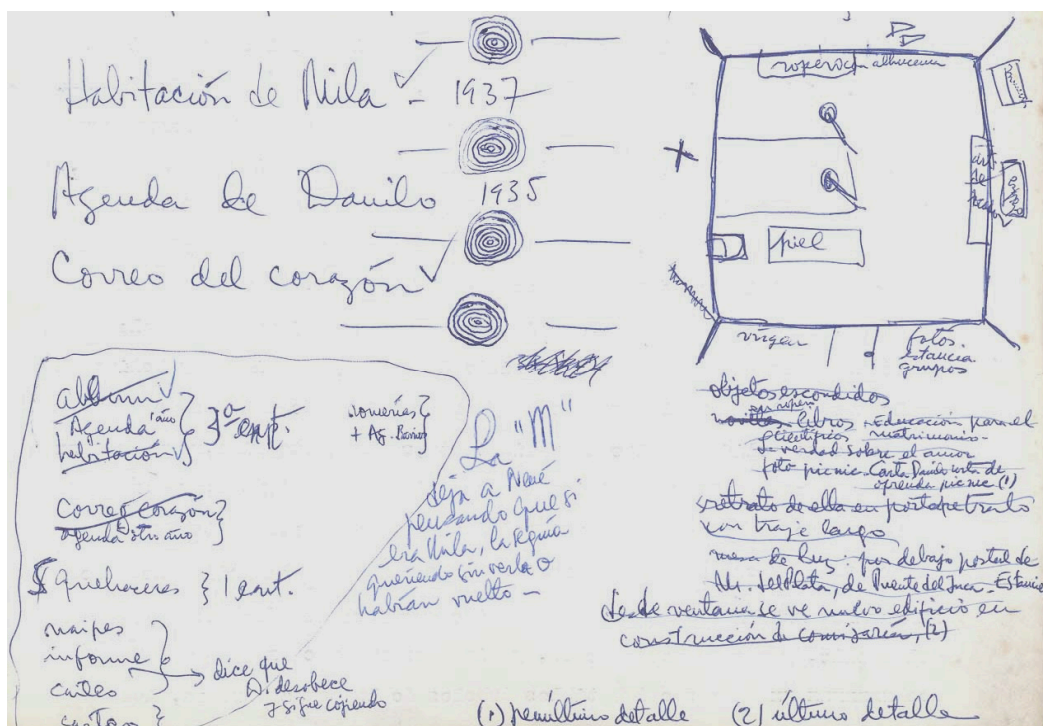 Habitación de Mila - 1937
Agenda de Danilo 1935
Correo del corazón
ropero
piel
virgen
fotos
estancia
grupos
album
Agenda 1 año
habitación
3ª ent.
+ Ag.
correo corazón
agenda otro año
quehaceres } 1 ent.
naipes
informe
dice que
D. desobece
y sigue cojiendo
La "M"
deja a Nené
pensando que si
era Mila, la seguía
queriendo sin verla o
habían vuelto -
objetos escondidos
novillo libros Educación para el
matrimonio -
La verdad sobre el amor
foto picnic Carta Danilo
picnic (1)
retrato de ella en portaretrato
con traje largo
mesa de luz: por debajo postal de
M. del Plata, de Puente del Inca. Estancia
desde ventana se ve nuevo edificio en
construcción de comisaría, (2)
(1) penúltimo detalle (2) último detalle